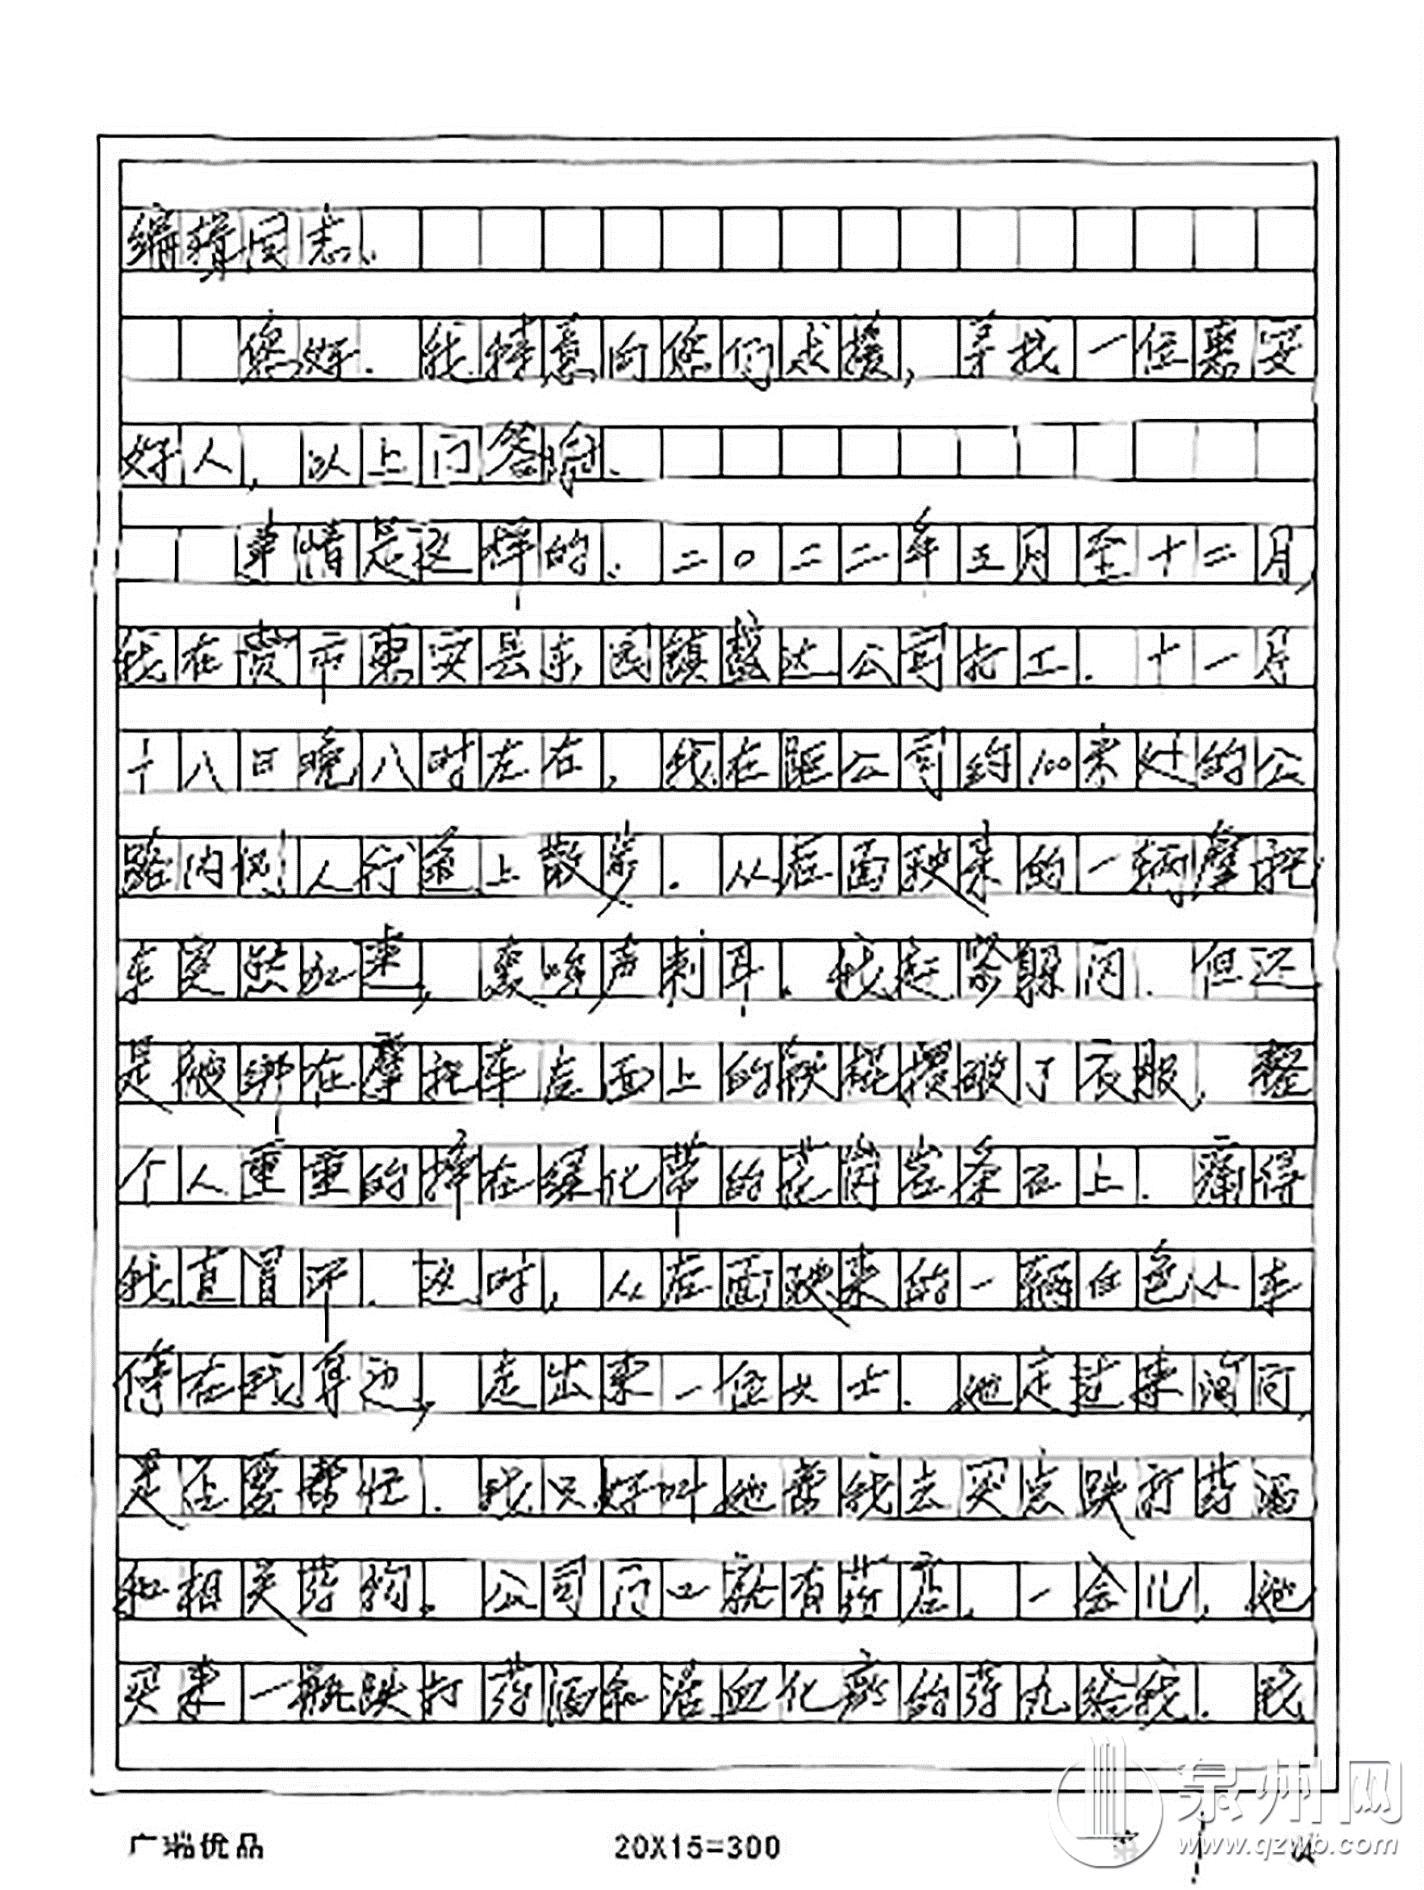 编辑同志、
您好．我特意向您们求援，寻找一位惠安
好人，以上门答谢．
事情是这样的．二〇二二年五月至十二月，
我在贵市惠安县东园镇 达公司打工．十一月
十八日晚八时左右，我在距公司约100米处的公
路内侧人行道上散步．从后面驶来的一辆摩托
车突然加速，轰鸣声刺耳．我赶紧躲闪．但还
是被绑在摩托车后面上的铁棍 破了衣服，整
个人重重的摔在绿化带的花岗岩条石上．痛得
我直冒汗．这时，从后面驶来的一辆白色小车
停在我身边，走出来一位女士．她走过来询问，
是否要帮忙．我只好叫她帮我去买点跌打药酒
和相关药物。公司门口就有药店．一会儿，她
买来一瓶跌打药酒和活血化瘀的药丸给我．我
广瑞优品 20X15=300 第 页
泉州网
www.qzwb.com